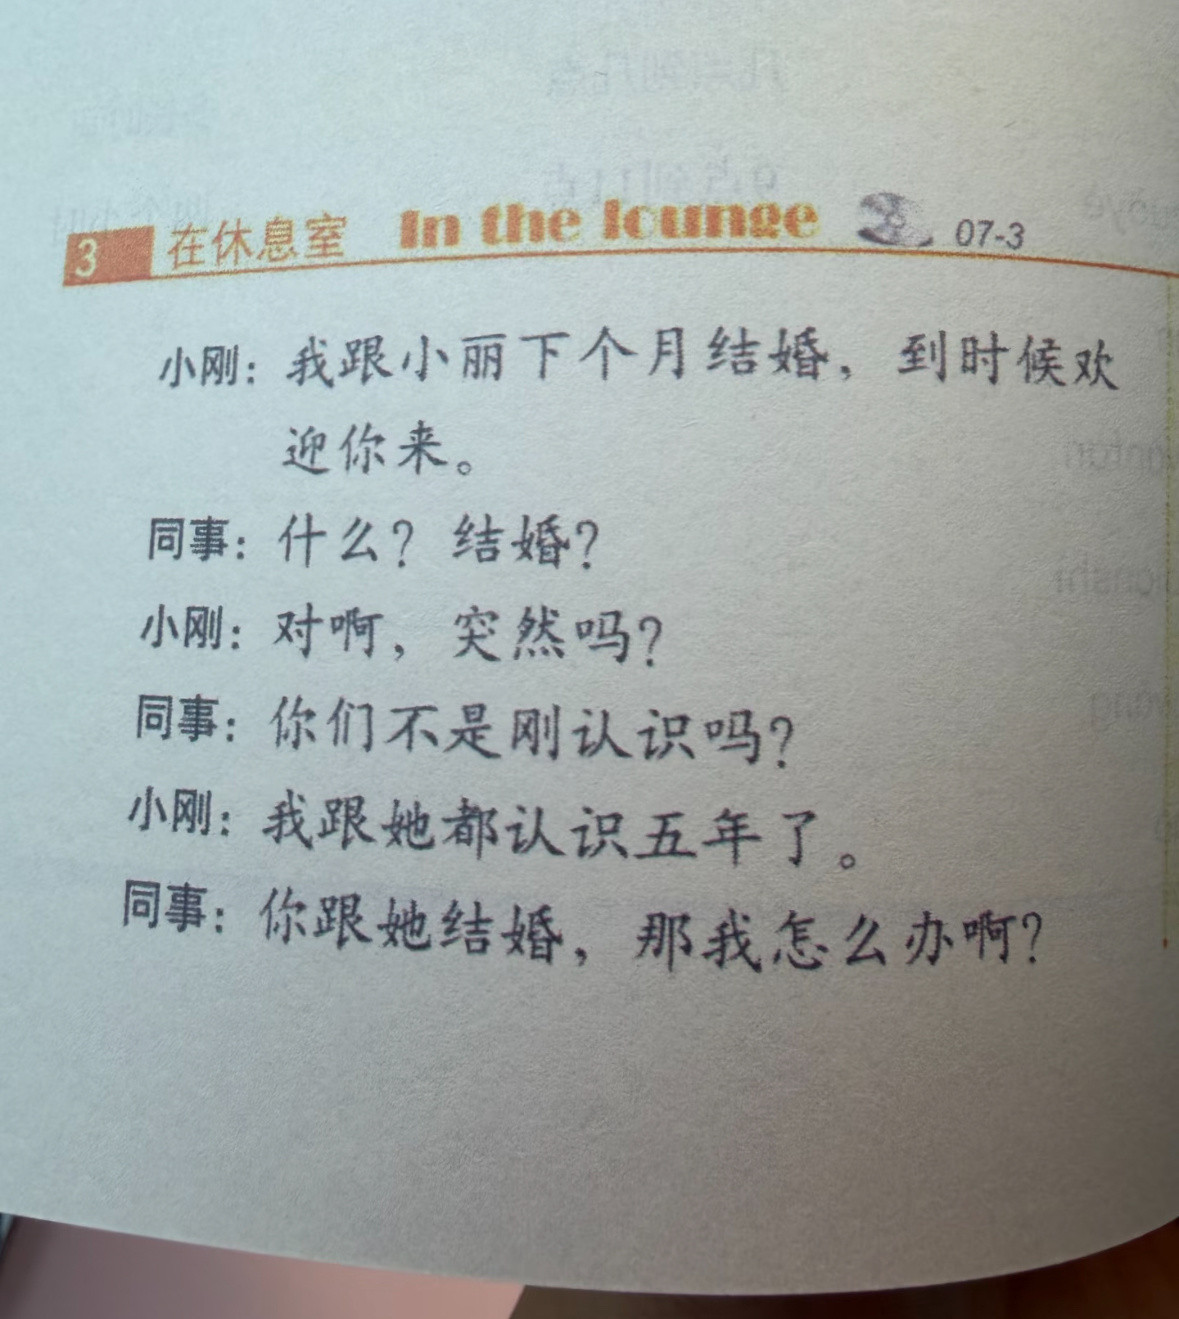 3 在休息室 In the lounge 07-3
小刚：我跟小丽下个月结婚，到时候欢
迎你来。
同事：什么？结婚？
小刚：对啊，突然吗？
同事：你们不是刚认识吗？
小刚：我跟她都认识五年了。
同事：你跟她结婚，那我怎么办啊？